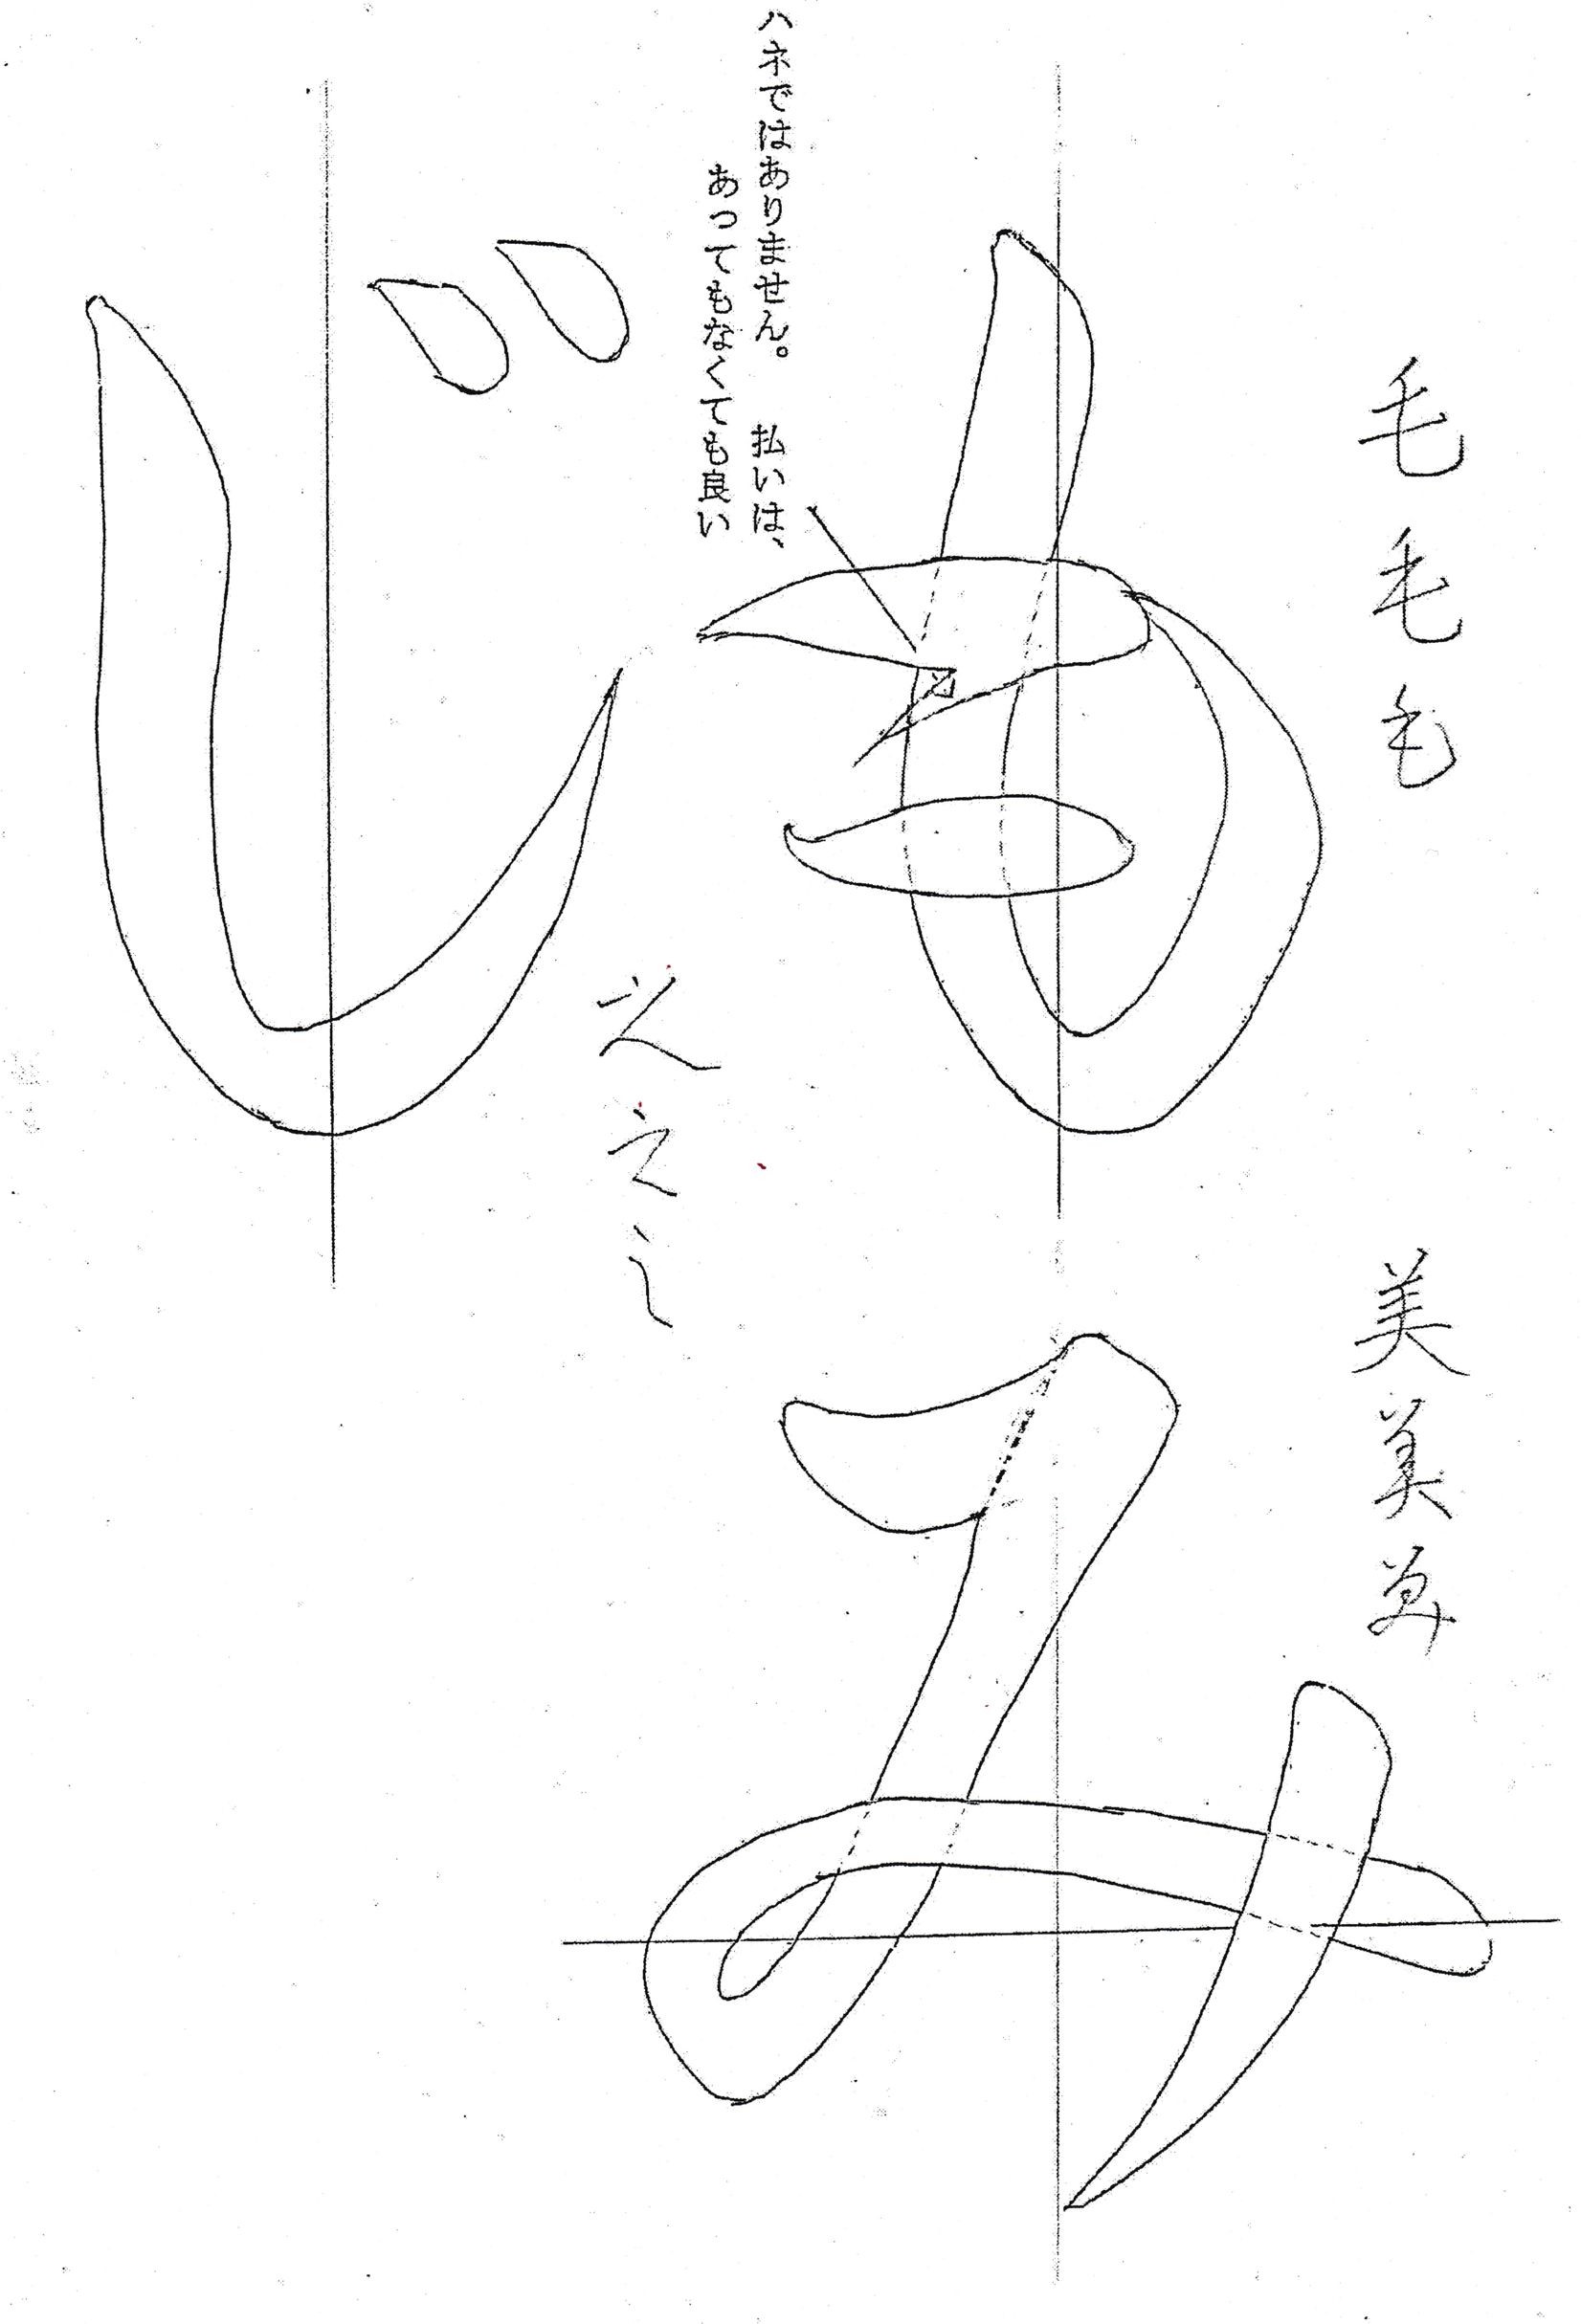 毛毛毛 美美美
もみ
ハネではありません。 払いは、
あってもなくても良い
之之之
じ